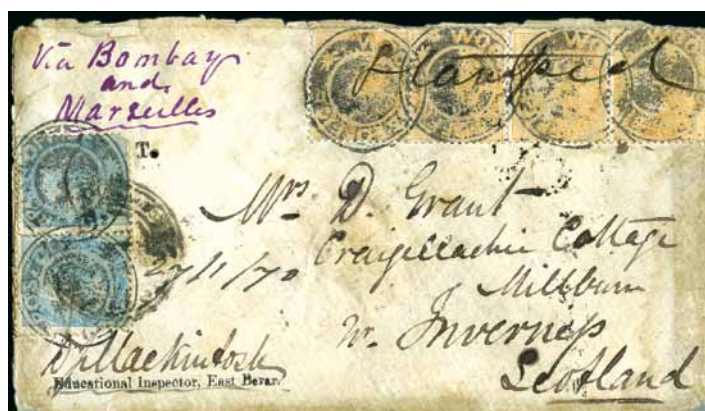 Via Bombay
and
Marseilles
Stamped
T.
Mrs D. Grant
Craigellachie Cottage
Millburn
Nr. Inverness
Scotland
27/1/70
Mackintosh
Educational Inspector, East Berar.